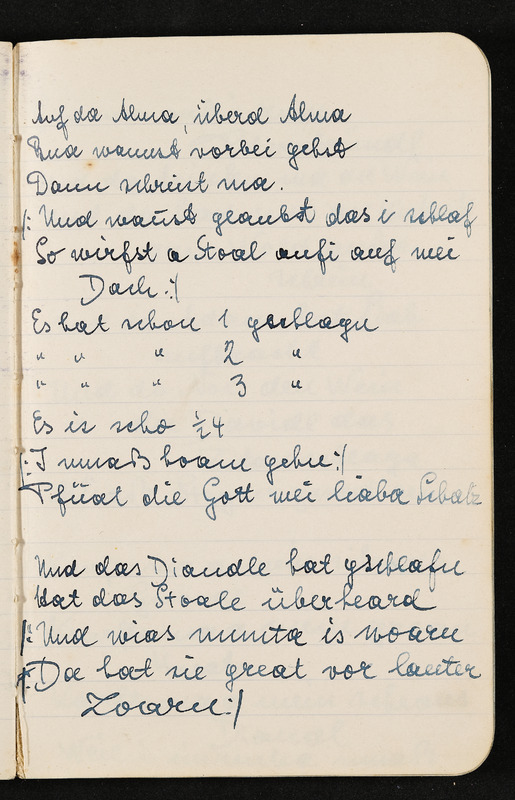 Auf da Alma, überd Alma
Bua wannst vorbei gehst
Dann schreist ma.
/: Und wañst glaubst das i schlaf
So wirfst a Stoal aufi auf mei
Dach :/
Es hat schon 1 gschlagn
" " " 2 "
" " " 3 "
Es is scho ½4
/: I muaß hoam gehn :/
Pfüat die Gott mei liaba Schatz
Und das Diandle hat gschlafn
Hat das Stoale überheard
/: Und wias munta is woarn
/: Da hat sie great vor lauter
Zoarn :/